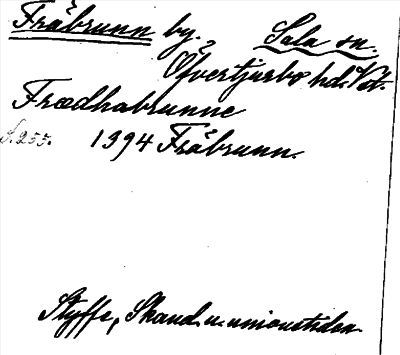 Fräbrunn by. Sala sn.
Öfvertjurbo hd. Vst.
Frædhabrunne
S. 255. 1394 Fräbrunn.
Styffe, Skand. u. unionstiden.